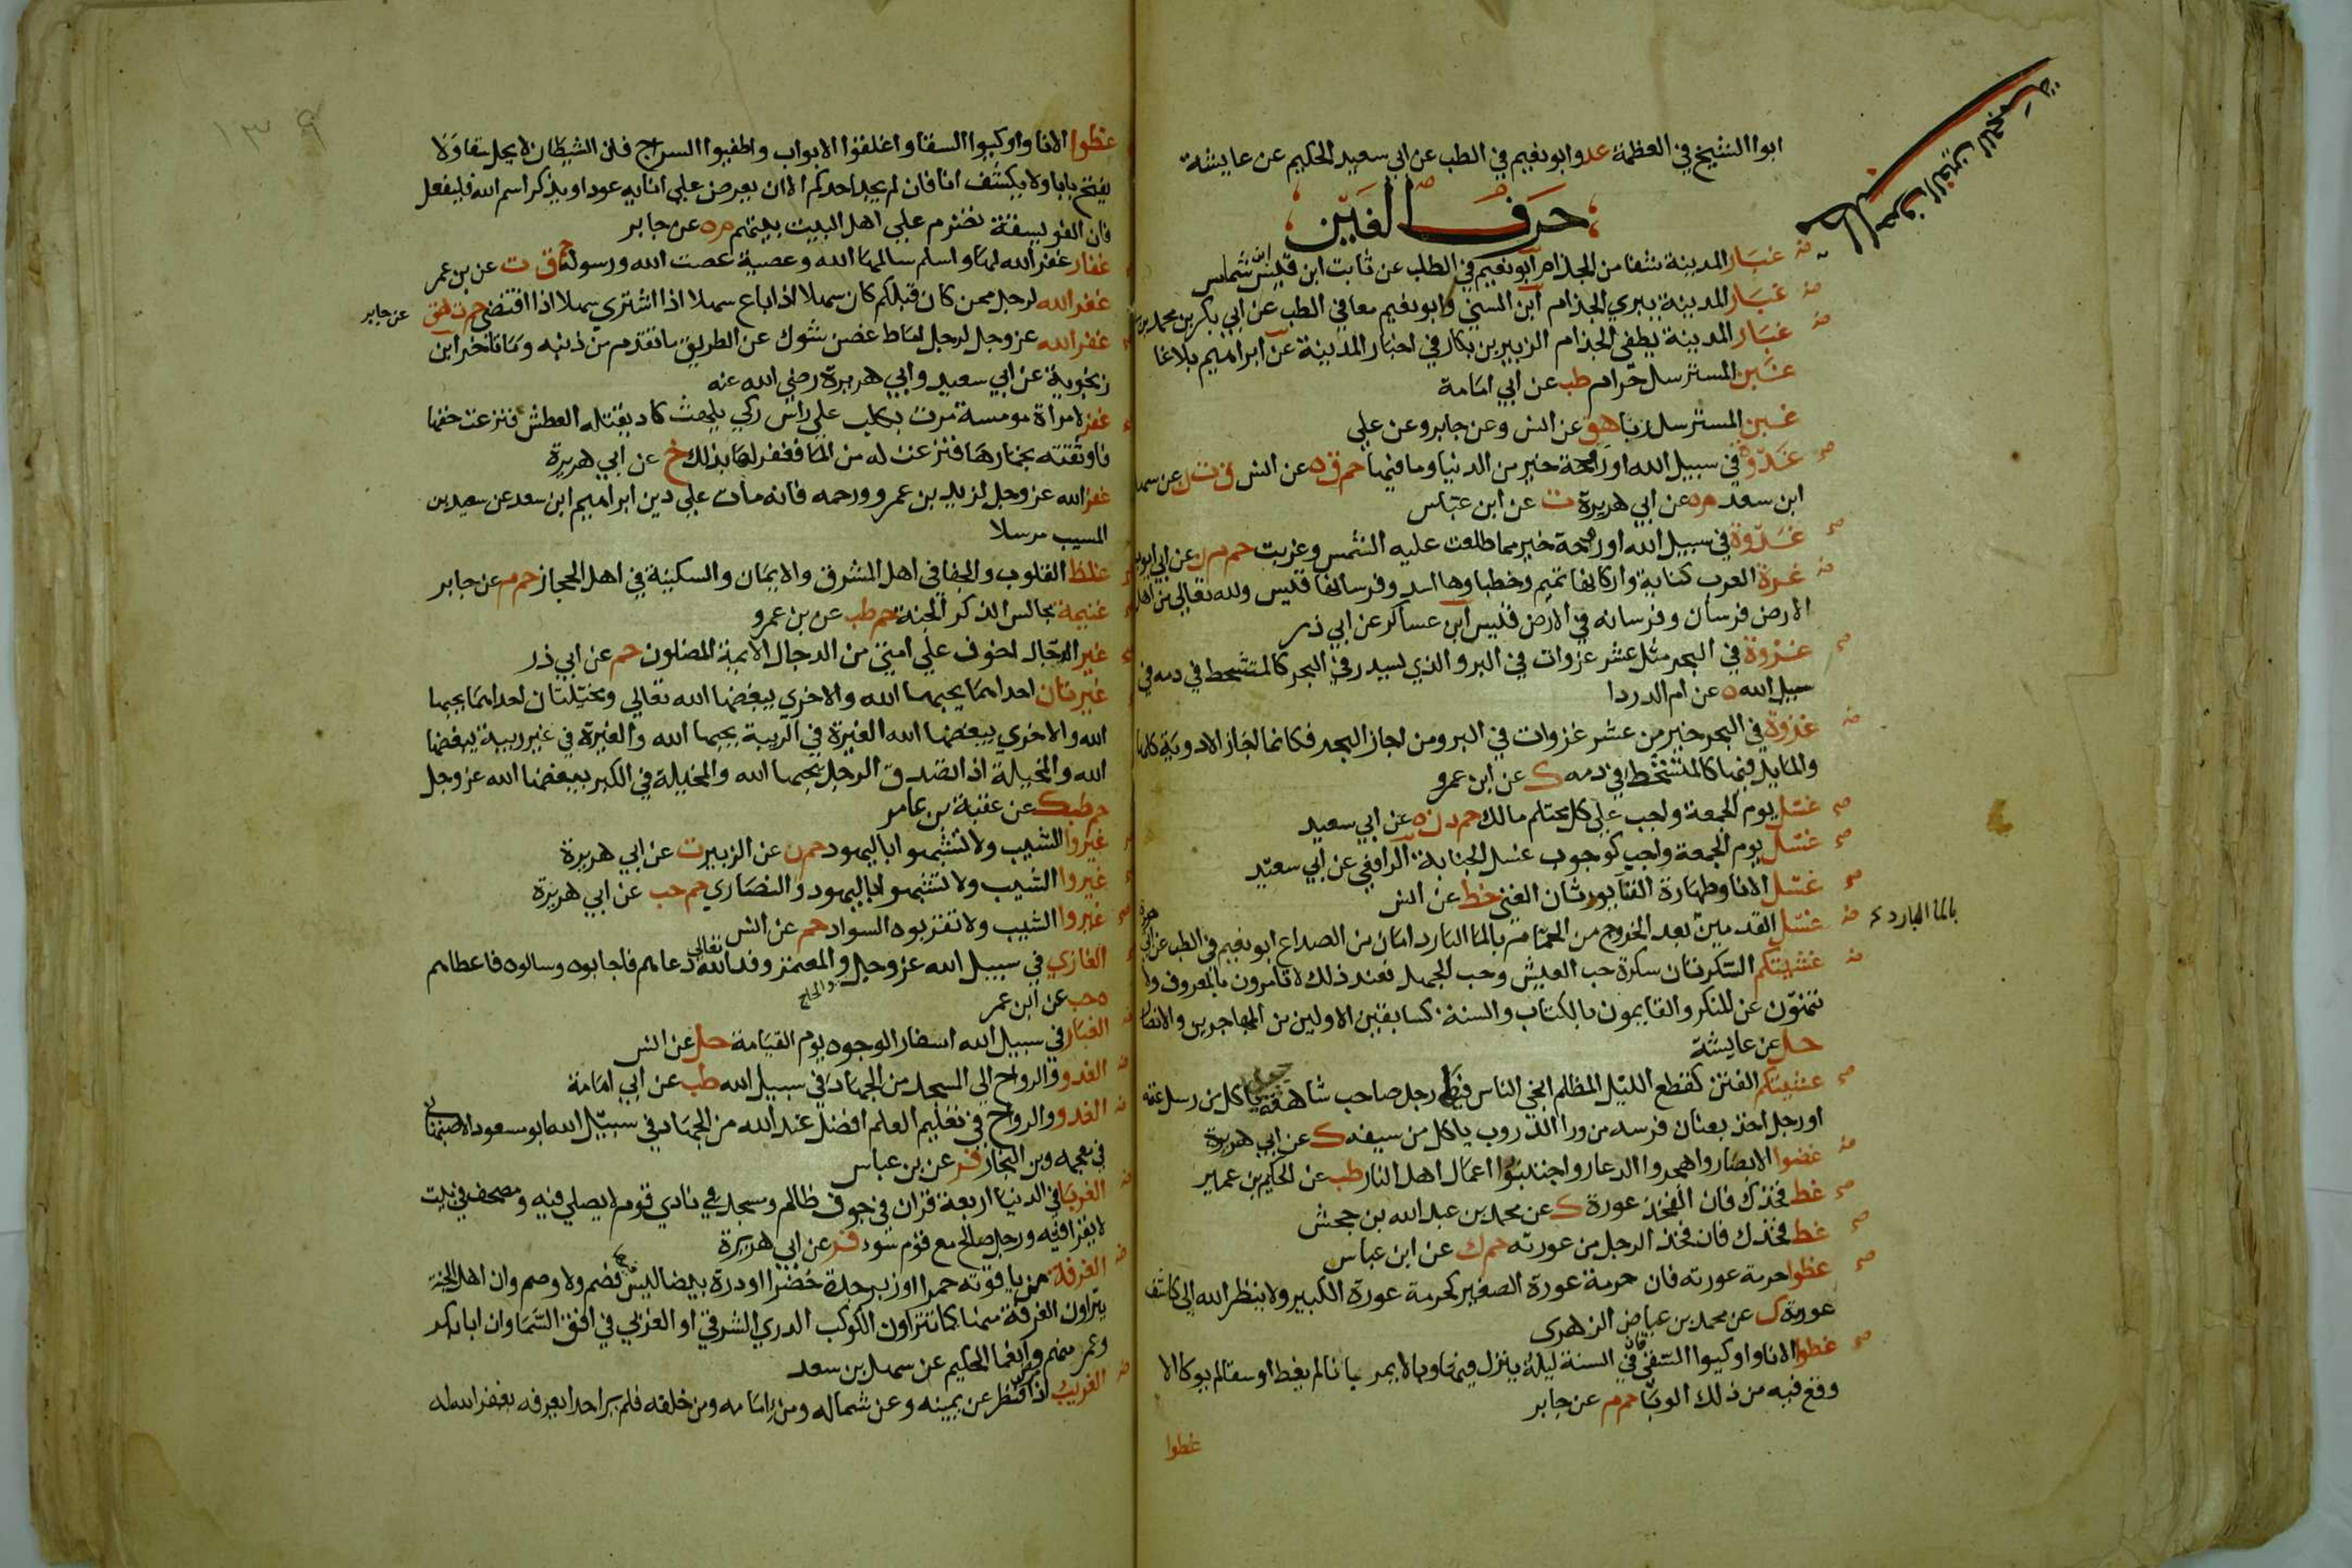 ابوا الشيخ في العظمة عد وابو نعيم في الطب عن ابي سعيد الحكيم عن عايشة
حرف الغين
حرف الغين المعجمة
غبار المدينة شفا من الجذام ابو نعيم في الطب عن ثابت ابن قيس ابن شماس
غبار المدينة يبري الجذام ابن السني وابو نعيم معا في الطب عن ابي بكر بن محمد بن
غبار المدينة يطفي الجذام الزبير بن بكار في اخبار المدينة عن ابراهيم بلاغا
غبن المسترسل حرام طب عن ابي امامة
غبن المسترسل ربا هق عن انس وعن جابر وعن علي
غدوة في سبيل الله او روحة خير من الدنيا وما فيها حم ق ه عن انس ق ت ن عن سهل
ابن سعد م ه عن ابي هريرة ت عن ابن عباس
غدوة في سبيل الله او روحة خير مما طلعت عليه الشمس وغربت حم م ن عن ابي ايوب
غرة العرب كنانة واركانها تميم وخطباوها اسد وفرسانها قيس ولله تعالي من اهل
الارض فرسان وفرسانه في الارض قيس ابن عساكر عن ابي ذر
غزوة في البحر مثل عشر غزوات في البر والذي يسدر في البحر كالمتشحط في دمه في
سبيل الله ه عن ام الدردا
غزوة في البحر خير من عشر غزوات في البر ومن اجاز البحر فكانما اجاز الاودية كلها
والمايد فيها كالمتشحط في دمه ك عن ابن عمرو
غسل يوم الجمعة واجب علي كل محتلم مالك حم د ن ه عن ابي سعيد
غسل يوم الجمعة واجب كوجوب غسل الجنابة الرافعي عن ابي سعيد
غسل الانا وطهارة الفنا يورثان الغني خط عن انس
غسل القدمين بعد الخروج من الحمام بالما البارد امان من الصداع ابو نعيم في الطب عن ابي هريرة
بالما البارد
غشيتكم السكرتان سكرة حب العيش وحب الجهل فعند ذلك لا تامرون بالمعروف ولا
تنهون عن المنكر والقايمون بالكتاب والسنة كسابقين الاولين من المهاجرين والانصار
حل عن عايشة
غشيتكم الفتن كقطع الليل المظلم انجي الناس فيها رجل صاحب شاهقة ياكل من رسل غنمه
او رجل اخذ بعنان فرسه من ورا الدروب ياكل من سيفه ك عن ابي هريرة
غضوا الابصار واهجروا الدعار واجتنبوا اعمال اهل النار طب عن الحكيم بن عمير
غط فخذك فان الفخذ عورة ك عن محمد بن عبد الله بن جحش
غط فخذك فان فخذ الرجل من عورته حم ك عن ابن عباس
غطوا حرمة عورته فان حرمة عورة الصغير كحرمة عورة الكبير ولا ينظر الله الي كاشف
عورة ك عن محمد بن عياض الزهري
غطوا الانا واوكيوا السقي فان في السنة ليلة ينزل فيها وبا لا يمر بانا لم يغط او سقا لم يوكا الا
وقع فيه من ذلك الوبا حم م عن جابر
غطوا
١٣٩
غطوا الانا واوكيوا السقا واغلقوا الابواب واطفيوا السراج فان الشيطان لا يحل سقا ولا
يفتح بابا ولا يكشف انا فان لم يجد احدكم الا ان يعرض علي انايه عودا ويذكر اسم الله فليفعل
فان الفويسقة تضرم علي اهل البيت بيتهم م ه عن جابر
غفار غفر الله لها واسلم سالمها الله وعصية عصت الله ورسوله حم ق ت عن بن عمر
غفر الله لرجل ممن كان قبلكم كان سهلا اذا باع سهلا اذا اشتري سهلا اذا اقتضي حم ت هق
عن جابر
غفر الله عز وجل لرجل اماط غصن شوك عن الطريق ما تقدم من ذنبه وما تاخر ابن
زنجوية عن ابي سعيد وابي هريرة رضي الله عنه
غفر لامراة مومسة مرت بكلب علي راس ركي يلهث كاد يقتله العطش فنزعت خفها
فاوثقته بخمارها فنزعت له من الما فغفر لها بذلك خ عن ابي هريرة
غفر الله عز وجل لزيد بن عمرو ورحمه فانه مات علي دين ابراهيم ابن سعد عن سعيد بن
المسيب مرسلا
غلظ القلوب والجفا في اهل المشرق والايمان والسكينة في اهل الحجاز حم م عن جابر
غنيمة مجالس الذكر الجنة حم طب عن بن عمرو
غير الدجال اخوف علي امتي من الدجال الايمة المضلون حم عن ابي ذر
غيرتان احداهما يحبها الله والاخري يبغضها الله تعالي ومخيلتان احداهما يحبها
الله والاخري يبغضها الله الغيرة في الريبة يحبها الله والغيرة في غير ريبة يبغضها
الله والمخيلة اذا تصدق الرجل يحبها الله والمخيلة في الكبر يبغضها الله عز وجل
حم طب ك عن عقبة بن عامر
غيروا الشيب ولا تشبهوا باليهود حم ن عن الزبير ت عن ابي هريرة
غيروا الشيب ولا تشبهوا باليهود والنصاري حم حب عن ابي هريرة
غيروا الشيب ولا تقربوه السواد حم عن انس
الغازي في سبيل الله عز وجل والحاج والمعتمر وفد الله تعالي دعاهم فاجابوه وسالوه فاعطاهم
ه حب عن ابن عمر
الغبار في سبيل الله اسفار الوجوه يوم القيامة حل عن انس
الغدو والرواح الي المسجد من الجهاد في سبيل الله طب عن ابي امامة
الغدو والرواح في تعليم العلم افضل عند الله من الجهاد في سبيل الله ابو مسعود الاصبهاني
في معجمه وبن النجار فر عن بن عباس
الغربا في الدنيا اربعة قران في جوف ظالم ومسجد في نادي قوم لا يصلي فيه ومصحف في بيت
لا يقرا فيه ورجل صالح مع قوم سوء فر عن ابي هريرة
الغرفة من ياقوته حمرا او زبرجدة خضرا او درة بيضا ليس فيها فصم ولا وصم وان اهل الجنة
يتراون الغرفة منها كما تتراون الكوكب الدري الشرقي او الغربي في افق السما وان ابا بكر
وعمر منهم وانعما الحكيم عن سهل بن سعد
الغريب اذا مرض فنظر عن يمينه وعن شماله ومن امامه ومن خلفه فلم ير احدا يعرفه يغفر الله له